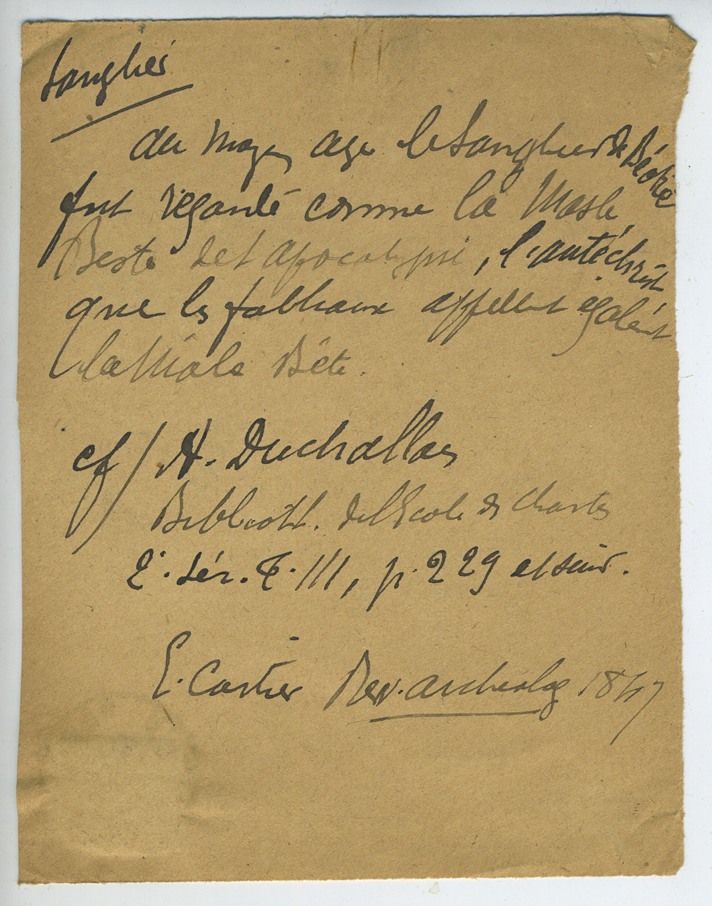 Sanglier
au moyen age le Sanglier de Béotie
fut regardé comme la Male
Beste de l'apocalypse, l'antéchrist
que les fabliaux appellent égalemt
la Male Bête.
cf/ A. Duchallais
Biblioth. de l'Ecole des Chartes
2e. sér. T. III, p. 229 et suiv.
E. Cartier Rev. archéolog 1847